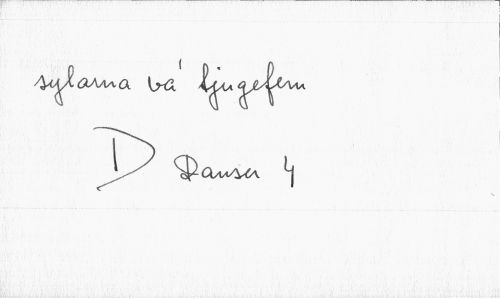 sylarna vá tjugefem
D Danser 4